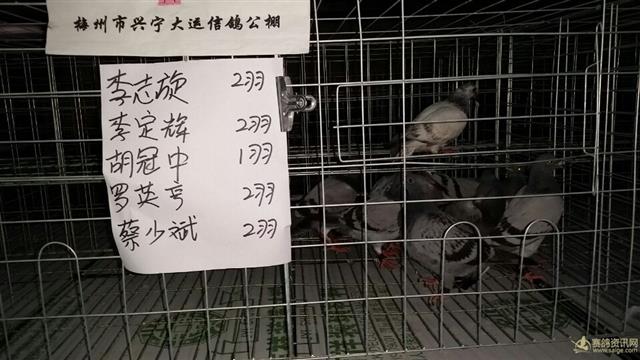 梅州市兴宁大运信鸽公棚
李志旋 2羽
李定辉 2羽
胡冠中 1羽
罗英亨 2羽
蔡少斌 2羽
赛鸽资讯网
www.saige.com